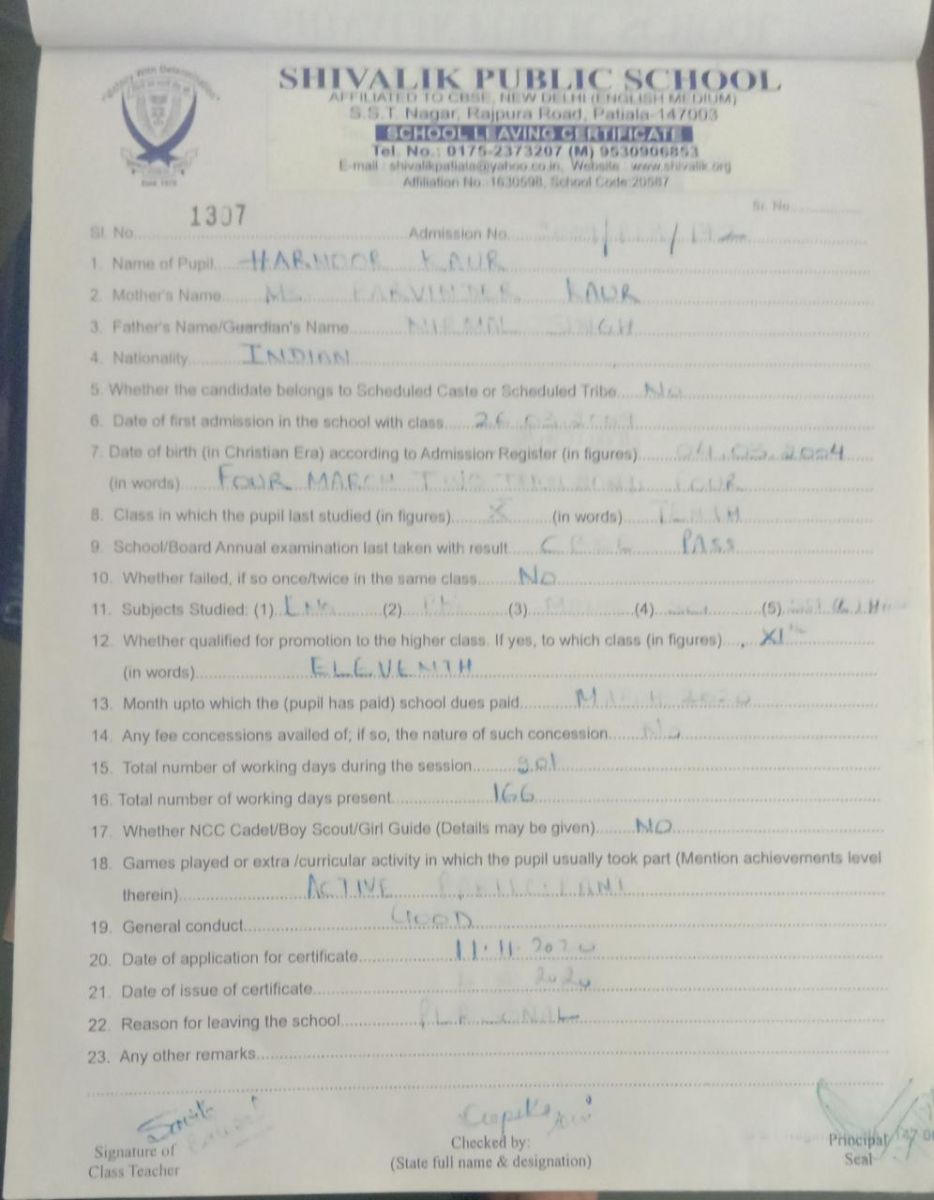 With Determination
SHIVALIK PUBLIC SCHOOL
AFFILIATED TO CBSE, NEW DELHI (ENGLISH MEDIUM)
S.S.T. Nagar, Rajpura Road, Patiala-147003
SCHOOL LEAVING CERTIFICATE
Tel. No.: 0175-2373207 (M) 9530906853
E-mail : shivalikpatiala@yahoo.co.in, Website : www.shivalik.org
Affiliation No. 1630598, School Code 20587
Sr. No.
Sl. No. 1307 Admission No.
1. Name of Pupil HARNOOR KAUR
2. Mother's Name Ms. PARVINDER KAUR
3. Father's Name/Guardian's Name NIRMAL SINGH
4. Nationality INDIAN
5. Whether the candidate belongs to Scheduled Caste or Scheduled Tribe No
6. Date of first admission in the school with class 26
7. Date of birth (in Christian Era) according to Admission Register (in figures) 04.03.2004
(in words) FOUR MARCH TWO THOUSAND FOUR
8. Class in which the pupil last studied (in figures) X (in words)
9. School/Board Annual examination last taken with result CBSE PASS
10. Whether failed, if so once/twice in the same class No
11. Subjects Studied: (1) Eng (2) (3) (4) (5)
12. Whether qualified for promotion to the higher class. If yes, to which class (in figures) XIth
(in words) ELEVENTH
13. Month upto which the (pupil has paid) school dues paid MARCH 2020
14. Any fee concessions availed of; if so, the nature of such concession No
15. Total number of working days during the session 201
16. Total number of working days present 166
17. Whether NCC Cadet/Boy Scout/Girl Guide (Details may be given) NO
18. Games played or extra /curricular activity in which the pupil usually took part (Mention achievements level
therein) ACTIVE PARTICIPANT
19. General conduct GOOD
20. Date of application for certificate 11.11.2020
21. Date of issue of certificate 2020
22. Reason for leaving the school PERSONAL
23. Any other remarks
Signature of
Class Teacher
Checked by:
(State full name & designation)
Principal
Seal